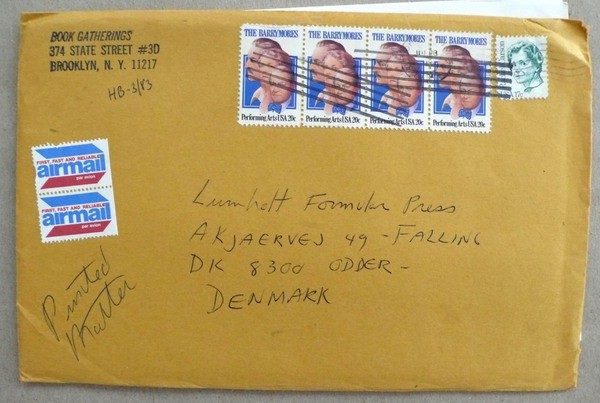 BOOK GATHERINGS
374 STATE STREET #3D
BROOKLYN, N. Y. 11217
HB-3/83
THE BARRYMORES THE BARRYMORES THE BARRYMORES THE BARRYMORES
Performing Arts USA 20c Performing Arts USA 20c Performing Arts USA 20c Performing Arts USA 20c
17c
FIRST, FAST AND RELIABLE
airmail
par avion
FIRST, FAST AND RELIABLE
airmail
par avion
Formular Press
AKJAERVEJ 49 - FALLING
DK 8300 ODDER -
DENMARK
Printed
Matter